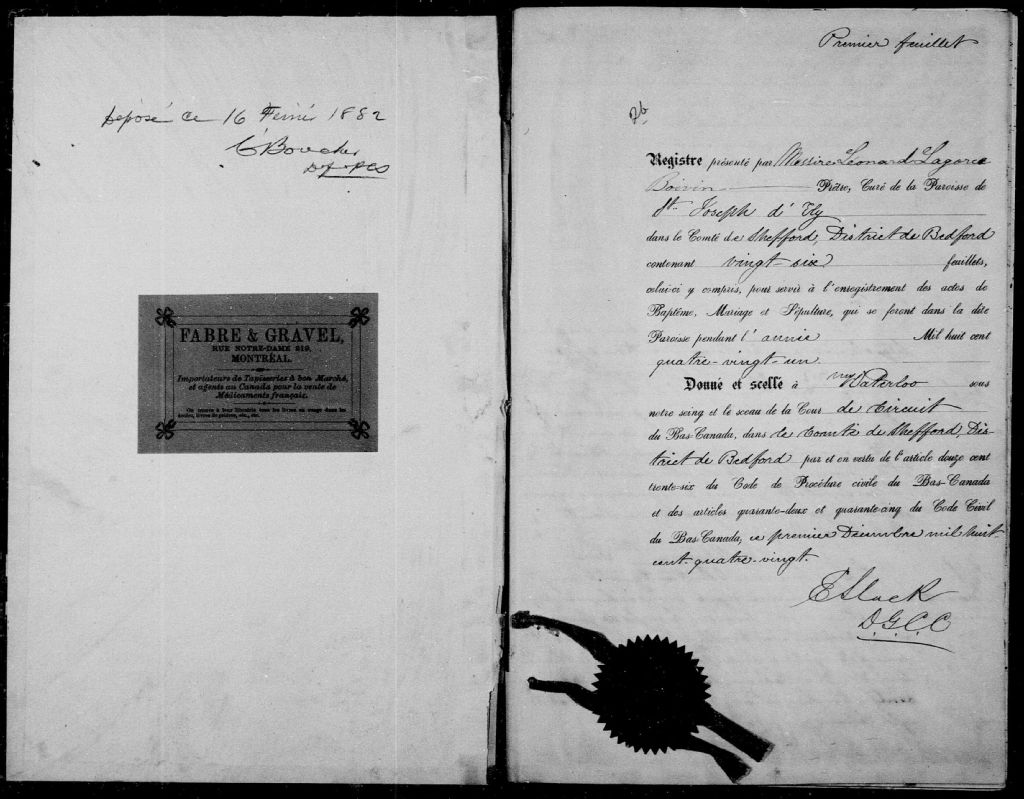 Déposé ce 16 Février 1882
C Boucher
FABRE & GRAVEL,
RUE NOTRE-DAME 219,
MONTRÉAL.
Importateurs de Tapisseries à bon Marché,
et agents au Canada pour la vente de
Médicaments français.
On trouve à leur librairie tous les livres en usage dans les
écoles, livres de prières, etc., etc.
Premier feuillet
26
Registre présenté par Messire Léonard Lagorce
Boivin Prêtre, Curé de la Paroisse de
St. Joseph d'Ely
dans le Comté de Shefford, District de Bedford
contenant vingt-six feuillets,
celui-ci y compris, pour servir à l'enregistrement des actes de
Baptême, Mariage et Sépulture, qui se feront dans la dite
Paroisse pendant l'année Mil huit cent
quatre-vingt-un
Donné et scellé à Waterloo sous
notre seing et le sceau de la Cour de Circuit
du Bas-Canada, dans le Comté de Shefford, Dis-
trict de Bedford par et en vertu de l'article douze cent
trente-six du Code de Procédure civile du Bas-Canada
et des articles quarante-deux et quarante-cinq du Code Civil
du Bas-Canada, ce premier Décembre mil huit-
cent-quatre-vingt.
E Slack
D.G.C.C